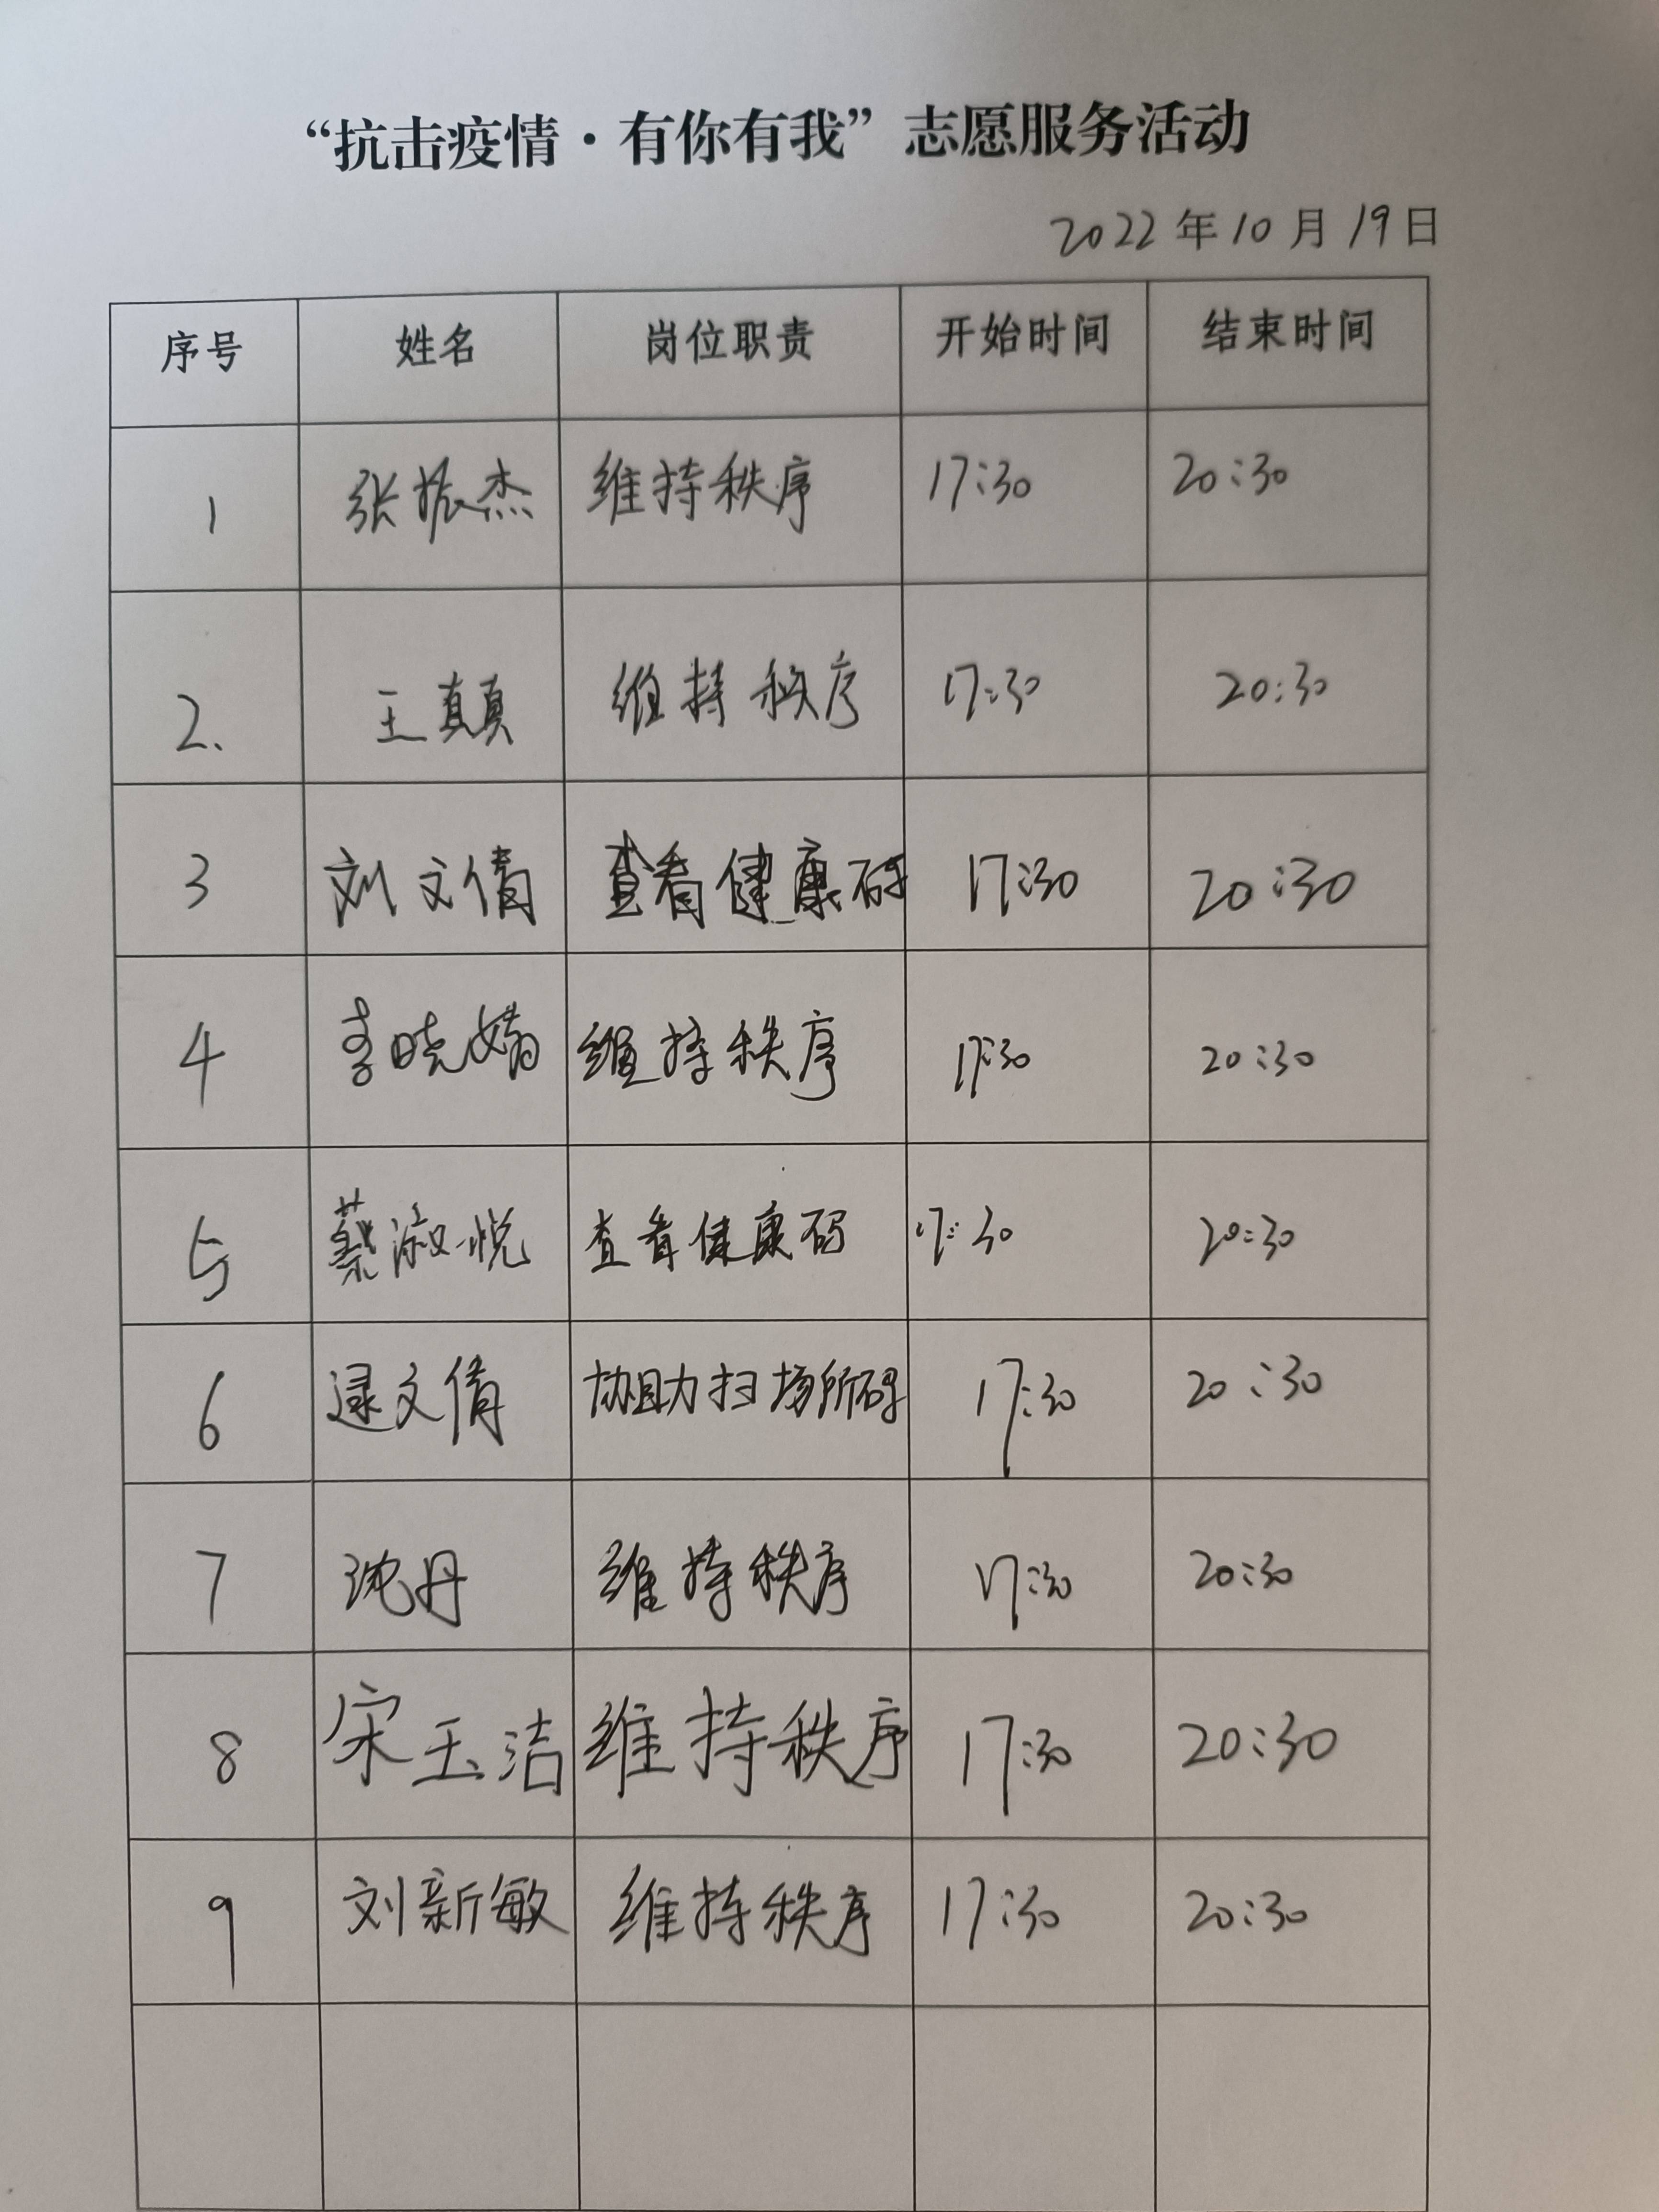 “抗击疫情·有你有我”志愿服务活动
2022年10月19日
序号 姓名 岗位职责 开始时间 结束时间
1 张振杰 维持秩序 17:30 20:30
2、 王真真 维持秩序 17:30 20:30
3 刘文倩 查看健康码 17:30 20:30
4 李晓婧 维持秩序 17:30 20:30
5 蔡淑悦 查看健康码 17:30 20:30
6 逯文倩 协助扫场所码 17:30 20:30
7 沈丹 维持秩序 17:30 20:30
8 宋玉洁 维持秩序 17:30 20:30
9 刘新敏 维持秩序 17:30 20:30